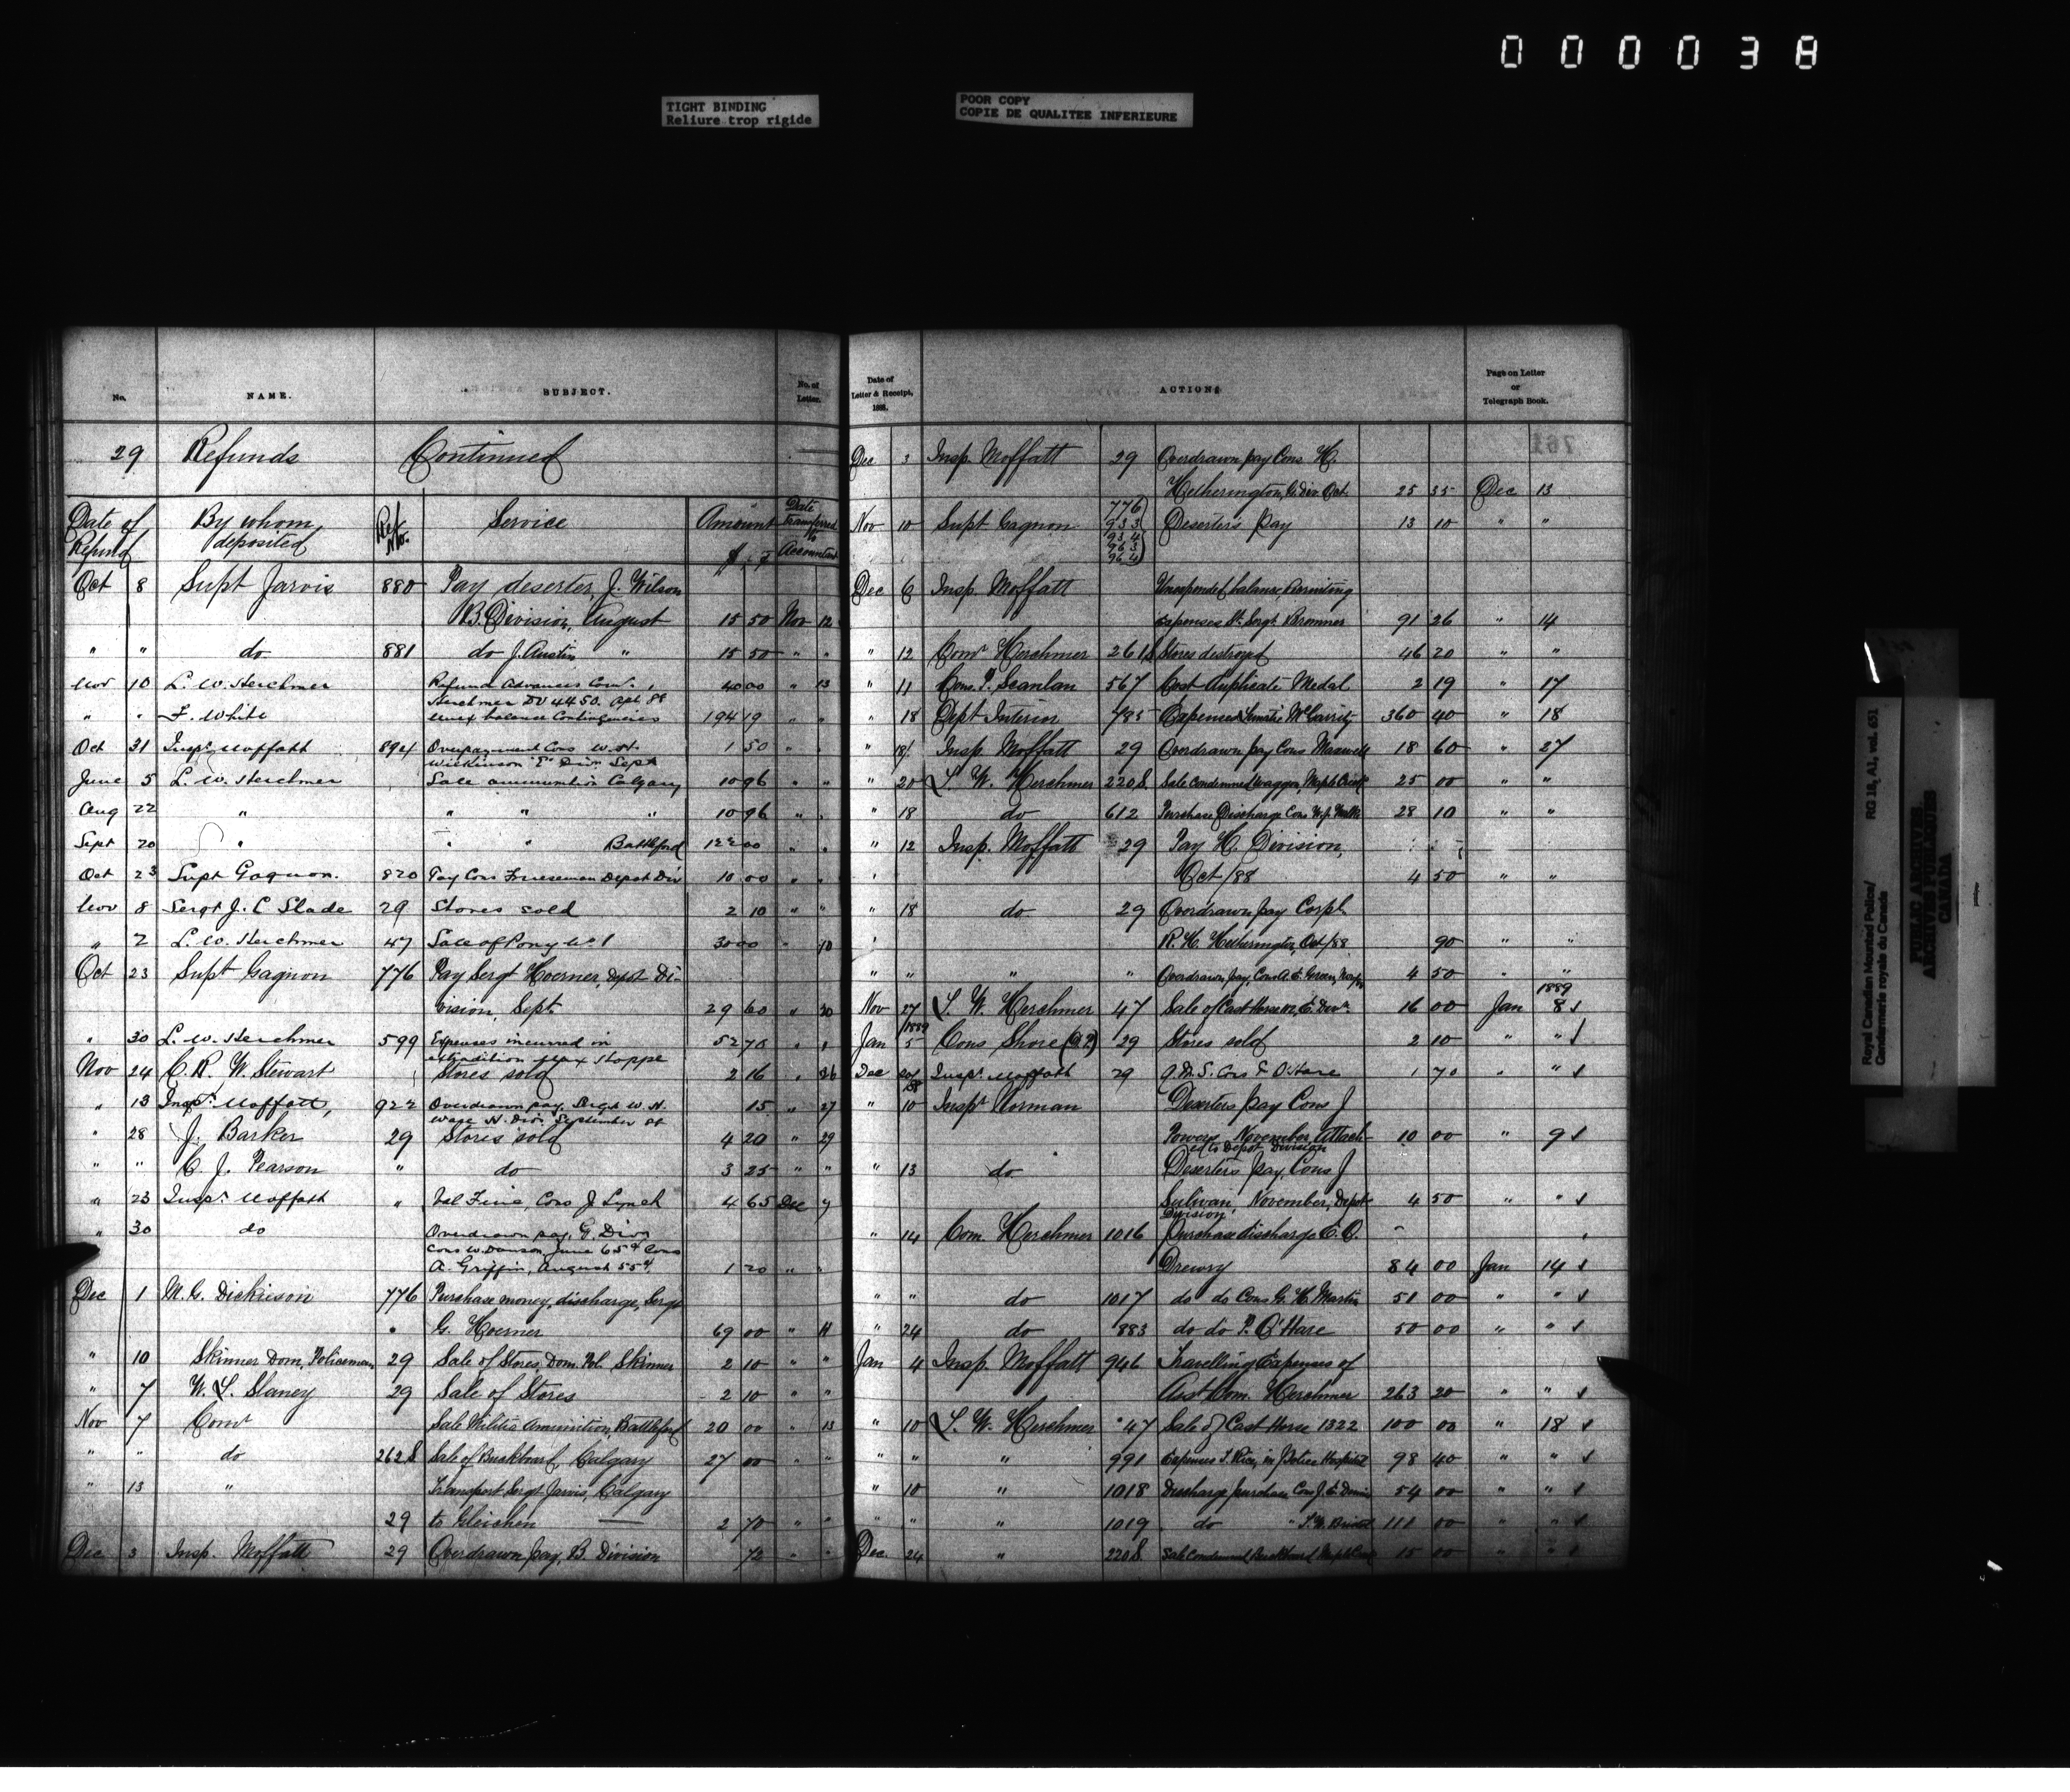 000038
TIGHT BINDING
Reliure trop rigide
POOR COPY
COPIE DE QUALITEE INFERIEURE
No. NAME. SUBJECT. No. of Letter.
29 Refunds Continued
Date of Refund By whom deposited Ref. No. Service Amount $ ¢ Date transferred to Accountant
Oct 8 Supt Jarvis 880 Pay deserter, J. Wilson
B. Division, August 15 50 Nov 12
" " do 881 do J. Austin " 15 50 " "
Nov 10 L. W. Herchmer Refund Advances Comr. 40 00 " 13
Herchmer DV 4450. Apl 88
" " F. White Unex balance Contingencies 194 19 " "
Oct 31 Inspr. Moffatt 894 Overpayment Cons W. H. 1 50 " "
Wilkinson "E" Div. Sept
June 5 L. W. Herchmer Sale ammunition Calgary 10 96 " "
Aug 22 " " " " 10 96 " "
Sept 20 " " " Battleford 122 00 " "
Oct 23 Supt Gagnon. 820 Pay Cons Frieseman Depot Div 10 00 " "
Nov 8 Sergt J. C Slade 29 Stores sold 2 10 " "
" 2 L. W. Herchmer 47 Sale of Pony No 1 30 00 " 10
Oct 23 Supt Gagnon 776 Pay Sergt Hoerner, Depot Di-
vision, Sept 29 60 " 20
" 30 L. W. Herchmer 599 Expenses incurred in 52 70 "
extradition Max Hoppe
Nov 24 C. R. W. Stewart Stores sold 2 16 " 26
" 13 Inspr. Moffatt, 922 Overdrawn pay, Sergt W. H. 15 " 27
Wage H. Div. September 88
" 28 J. Barker 29 Stores sold 4 20 " 29
" " C. J. Pearson " do 3 25 " "
" 23 Inspr. Moffatt " Val Fine, Cons J Lynch 4 65 Dec 7
" 30 do Overdrawn pay, G. Divn
Cons W. Dawson, June 65¢ Cons
A. Griffin, August 55¢. 1 20 " "
Dec 1 M. G. Dickieson 776 Purchase money, discharge, Sergt
G. Hoerner 69 00 " 11
" 10 Skinner Dom, Policeman 29 Sale of Stores, Dom. Pol. Skinner 2 10 " "
" 7 W. L. Slaney 29 Sale of Stores 2 10 " "
Nov 7 Comr Sale Militia Ammunition, Battleford 20 00 " 13
" " do 262S Sale of Buckboard, Calgary 27 00 " "
" 13 " Transport Sergt Jarvis, Calgary
29 to Gleichen 2 70 " "
Dec 3 Insp. Moffatt 29 Overdrawn pay, B. Division 72 " "
Date of Letter & Receipt, 188. ACTIONS Page on Letter or Telegraph Book.
Dec 3 Insp. Moffatt 29 Overdrawn pay Cons H.
Hetherington, Div Oct. 25 35 Dec 13
Nov 10 Supt Gagnon 776 933 934 963 964 Deserter's Pay 13 10 " "
Dec 6 Insp. Moffatt Unexpended balance, Recruiting
expenses St. Sergt. Bremner 91 26 " 14
" 12 Comr Herchmer 261S Stores destroyed 46 20 " "
" 11 Cons. P. Scanlan 567 Cost duplicate Medal 2 19 " 17
" 18 Dept Interior 785 Expenses Lunatic McCarrity 360 40 " 18
" 18 Insp. Moffatt 29 Overdrawn pay Cons Maxwell 18 60 " 27
" 20 L. W. Herchmer 220S. Sale Condemned Waggon, Maple Creek 25 00 " "
" 18 do 612 Purchase Discharge Cons 28 10 " "
" 12 Insp. Moffatt 29 Pay H. Division,
Oct/88 4 50 " "
" 18 do 29 Overdrawn pay Corpl
R. H. Hetherington, Oct/88 90 " "
" " " " Overdrawn pay, Cons A. E. Green 4 50 " "
1889
Nov 27 L. W. Herchmer 47 Sale of Cast Horse, E. Divn. 16 00 Jan 8
1889
Jan 5 Cons Shore 29 Stores sold 2 10 " "
Dec 20/88 Inspr. Moffatt 29 Q. M. S. Cons F. O'Hare 1 70 " "
" 10 Inspr Norman Deserter's pay Cons J
Powers, November, Attach- 10 00 " 9
ed to Depot Division
" 13 do. Deserter's pay, Cons J
Sulivan, November, Depot 4 50 " "
Division
" 14 Com. Herchmer 1016 Purchase discharge E. O.
Drewry 84 00 Jan 14
" " do 1017 do do Cons G. H. Martin 51 00 " "
" 24 do 883 do do P. O'Hare 50 00 " "
Jan 4 Insp. Moffatt 946 Travelling Expenses of
Asst Com. Herchmer 263 20 " "
" 10 L. W. Herchmer 47 Sale of Cast Horse 1322 100 00 " 18
" " " 991 Expenses T. Rice, in Police Hospital 98 40 " "
" 10 " 1018 Discharge purchase Cons J. E. 54 00 " "
" " " 1019 do " 111 00 " "
Dec. 24 " 220S. Sale Condemned Buckboard Maple Creek 15 00 " "
Royal Canadian Mounted Police/ RG 18, A1, vol. 651
Gendarmerie royale du Canada
PUBLIC ARCHIVES
ARCHIVES PUBLIQUES
CANADA